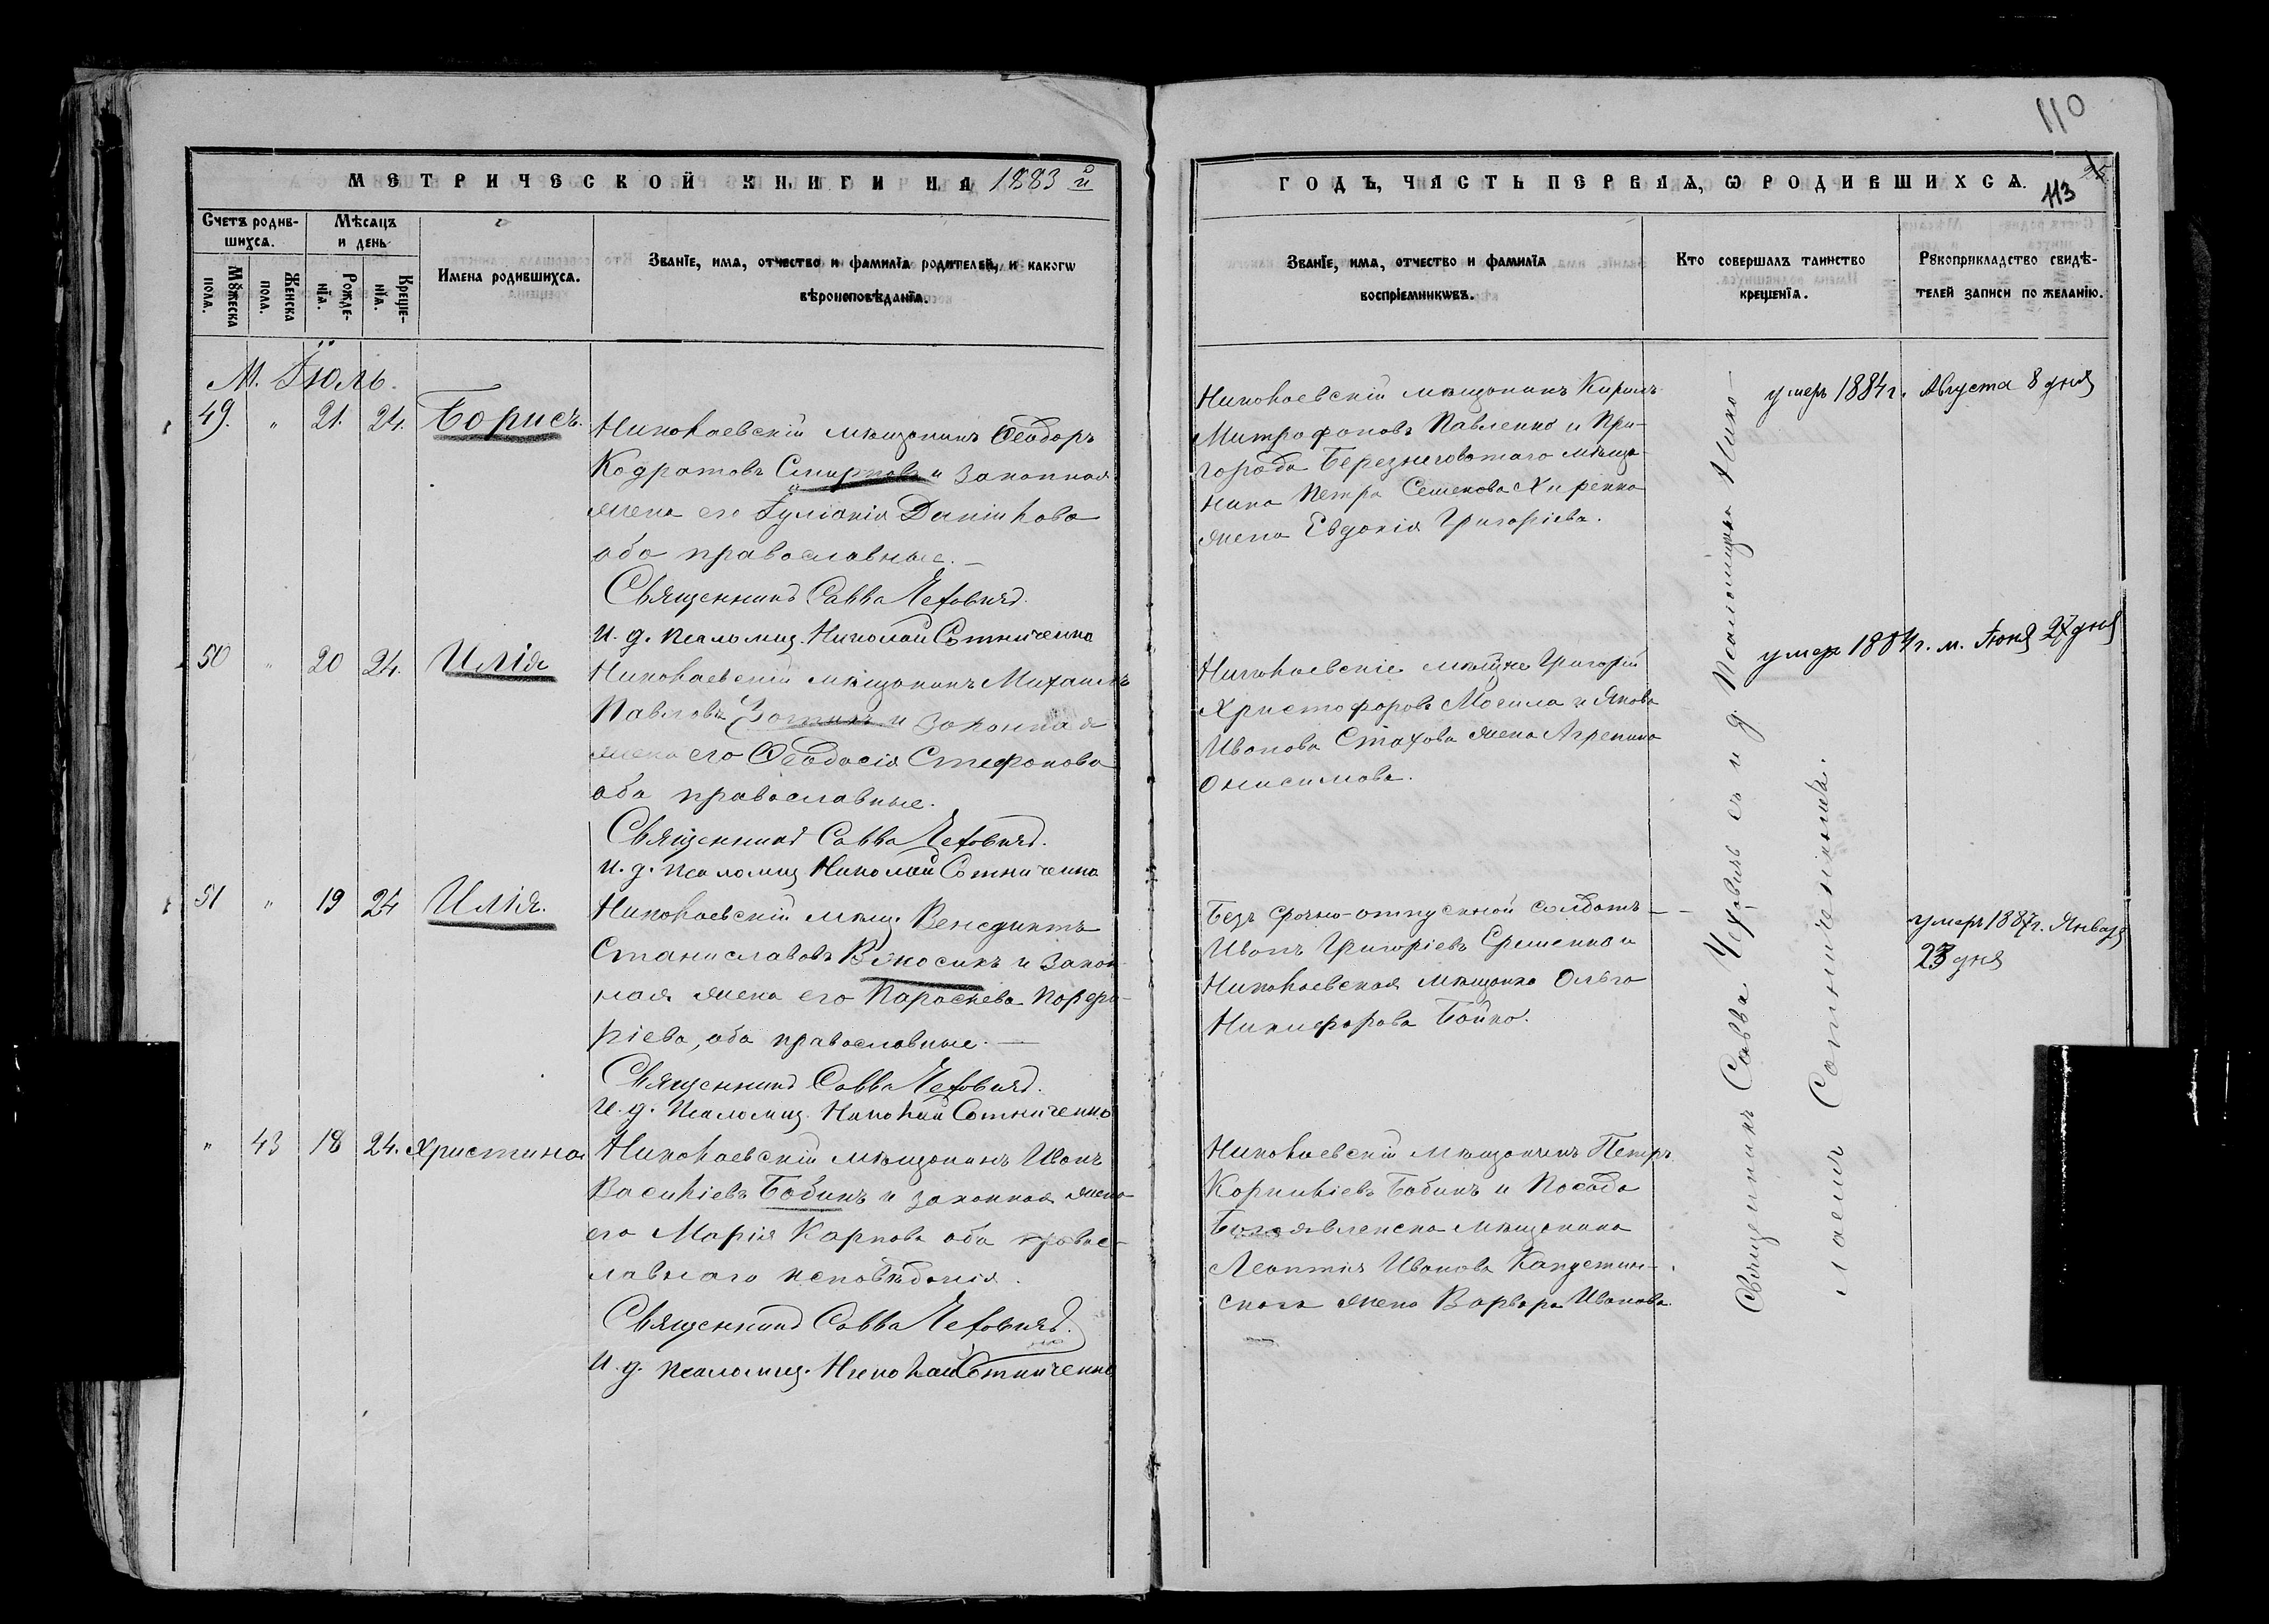 110
МЕТРИЧЕСКОЙ КНИГИ НА 1883 й
ГОДЪ, ЧАСТЬ ПЕРВАЯ, Ѡ РОДИВШИХСѦ.
113
Счетъ родив-
шихсѧ.
Мѣсяцъ
и день
Мꙋжеска
пола.
Женска
пола.
Рожде-
нїѧ.
Креще-
нїѧ.
Имена родившихсѧ.
Званїе, имѧ, отчество и фамилїѧ родителей, и какогѡ
вѣроисповѣданїѧ.
Званїе, имѧ, отчество и фамилїѧ
воспрїемникѡвъ.
Кто совершалъ таинство
крещенїѧ.
Рꙋкоприкладство свидѣ-
телей записи по желанїю.
М. Іюль.
49. " 21. 24. Борисъ.
Николаевскій мѣщанинъ Ѳеодоръ
Кодратовъ Смирновъ и законная
жена его Іуліанія Даніилова
оба православные. —
Священникъ Савва Чеховичъ.
И. д. псаломщ. Николай Сотниченко
Николаевскій мѣщанинъ Кирилъ
Митрофановъ Павленко и При-
города Березнеговатаго мѣща-
нина Петра Семенова Хиренка
жена Евдокія Григоріева.
умеръ 1884 г. Августа 8 дня
50 " 20 24. Илія
Николаевскій мѣщанинъ Михаилъ
Павловъ Зотинъ и законная
жена его Ѳеодосія Стефанова
оба православные.
Священникъ Савва Чеховичъ.
И. д. псаломщ. Николай Сотниченко
Николаевскіе мѣщане Григорій
Христофоровъ Могила и Якова
Иванова Стахова жена Агрепина
Онисимова.
умеръ 1884 г. м. Іюня 27 дня
51 " 19 24 Илія.
Николаевскій мѣщ. Венедиктъ
Станиславовъ Вѣлосикъ и закон-
ная жена его Параскева Порфи-
ріева, оба православные. —
Священникъ Савва Чеховичъ.
И. д. псаломщ. Николай Сотниченко
Безъ срочно-отпускной солдатъ —
Иванъ Григоріевъ Еременко и
Николаевская мѣщанка Ольга
Никифорова Бойко.
умеръ 1887 г. Января
23 дня
" 43 18 24. Христина
Николаевскій мѣщанинъ Иванъ
Василіевъ Бабинъ и законная жена
его Марія Карпова оба правос-
лавнаго исповѣданія.
Священникъ Савва Чеховичъ.
И. д. псаломщ. Николай Сотниченко
Николаевскій мѣщанинъ Петръ
Корниліевъ Бабинъ и Посада
Богоявленска мѣщанина
Леонтія Иванова Капустин-
скаго жена Варвара Иванова.
Священникъ Савва Чеховичъ съ и д Псаломщика Нико-
лаемъ Сотниченкомъ.